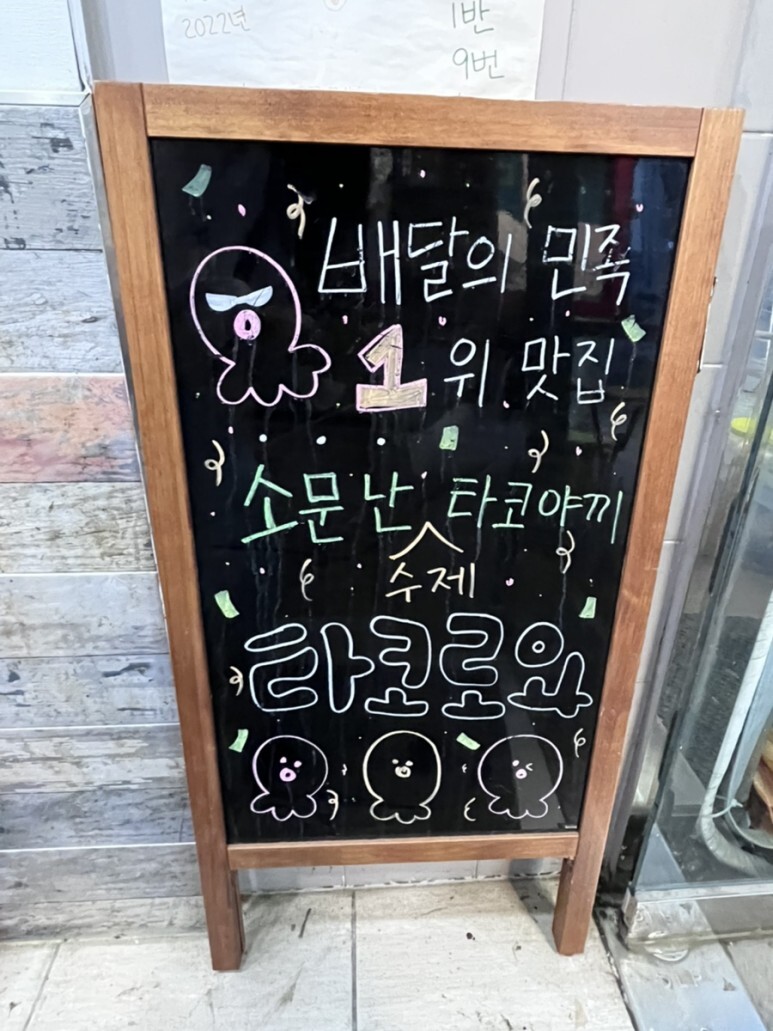 2022년
1반
9번
배달의 민족
1위 맛집
소문난 타코야끼
수제
타코로와